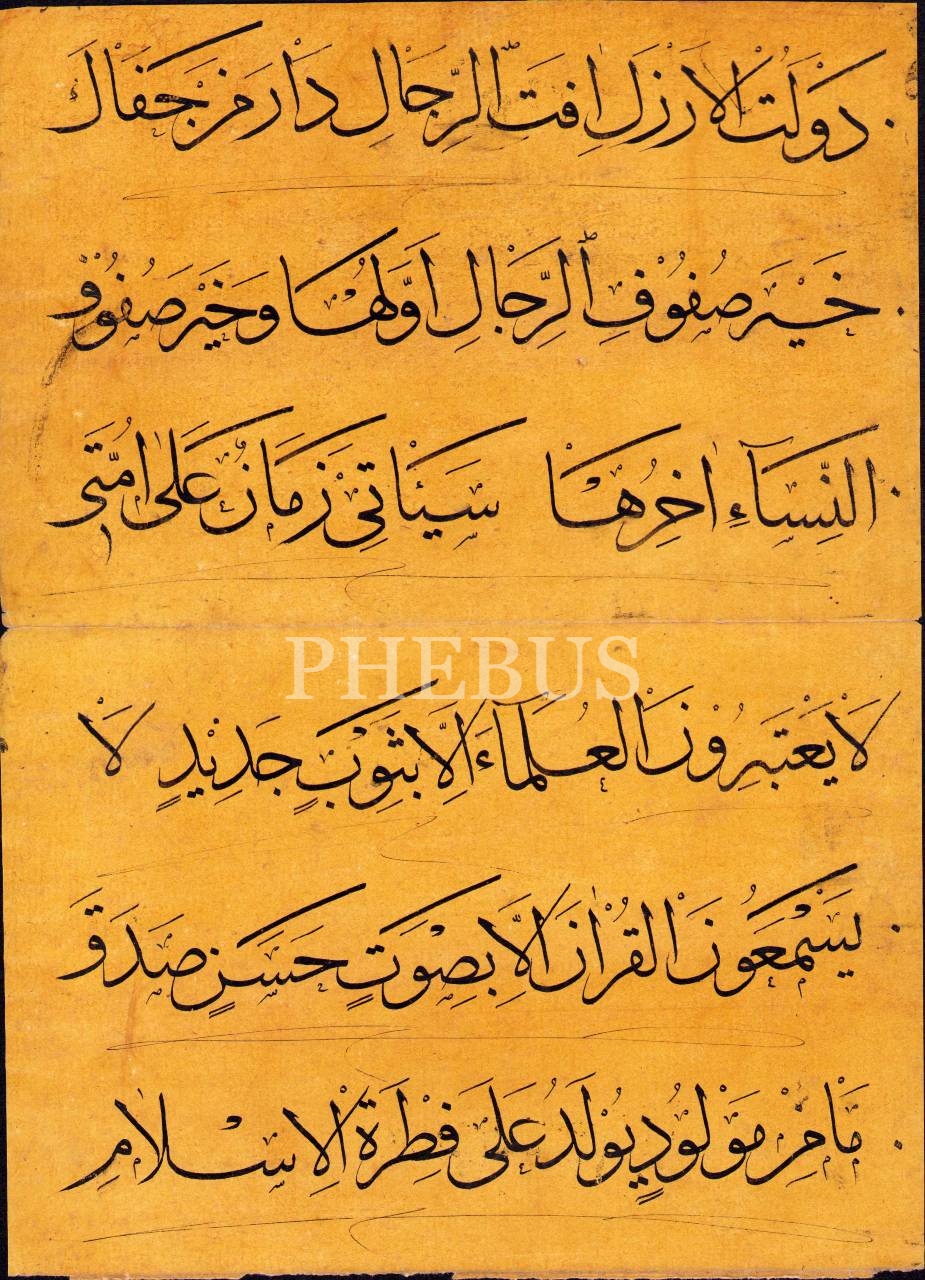 دَوْلَتُ الْاَرْزَلِ اٰفَتُ الرِّجَالِ دَارَ مَنْ جَفَاكَ
خَيْرَ صُفُوْفِ الرِّجَالِ اَوَّلُهَا وَخَيْرَ صُفُوْفُ
النِّسَاۤءِ اٰخِرُهَا سَيَأْتِى زَمَانٌ عَلٰى اُمَّتِى
PHEBUS
لَا يَعْتَبِرُوْنَ الْعُلَمَاۤءَ اِلَّا بِثَوْبٍ جَدِيْدٍ لَا
يَسْمَعُوْنَ الْقُرْاٰنَ اِلَّا بِصَوْتٍ حَسَنٍ صَدَقَ
مَا مِنْ مَوْلُوْدٍ يُوْلَدُ عَلَى فِطْرَةِ الْاِسْلَامِ